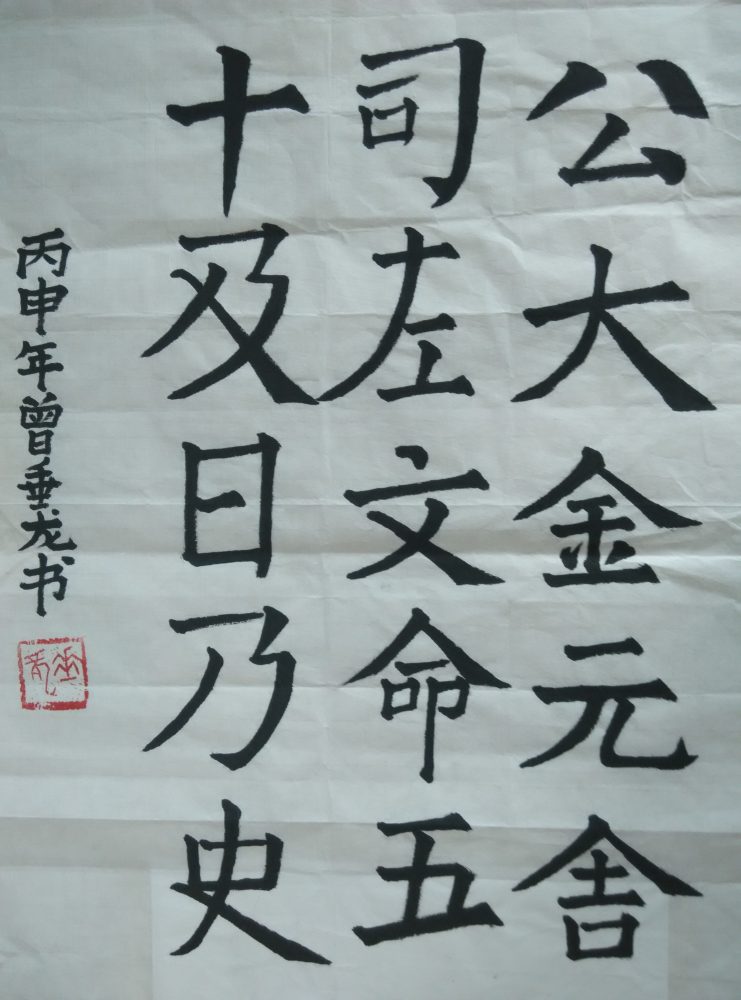 公大金元舍
司左文命五
十及日乃史
丙申年曾垂龙书